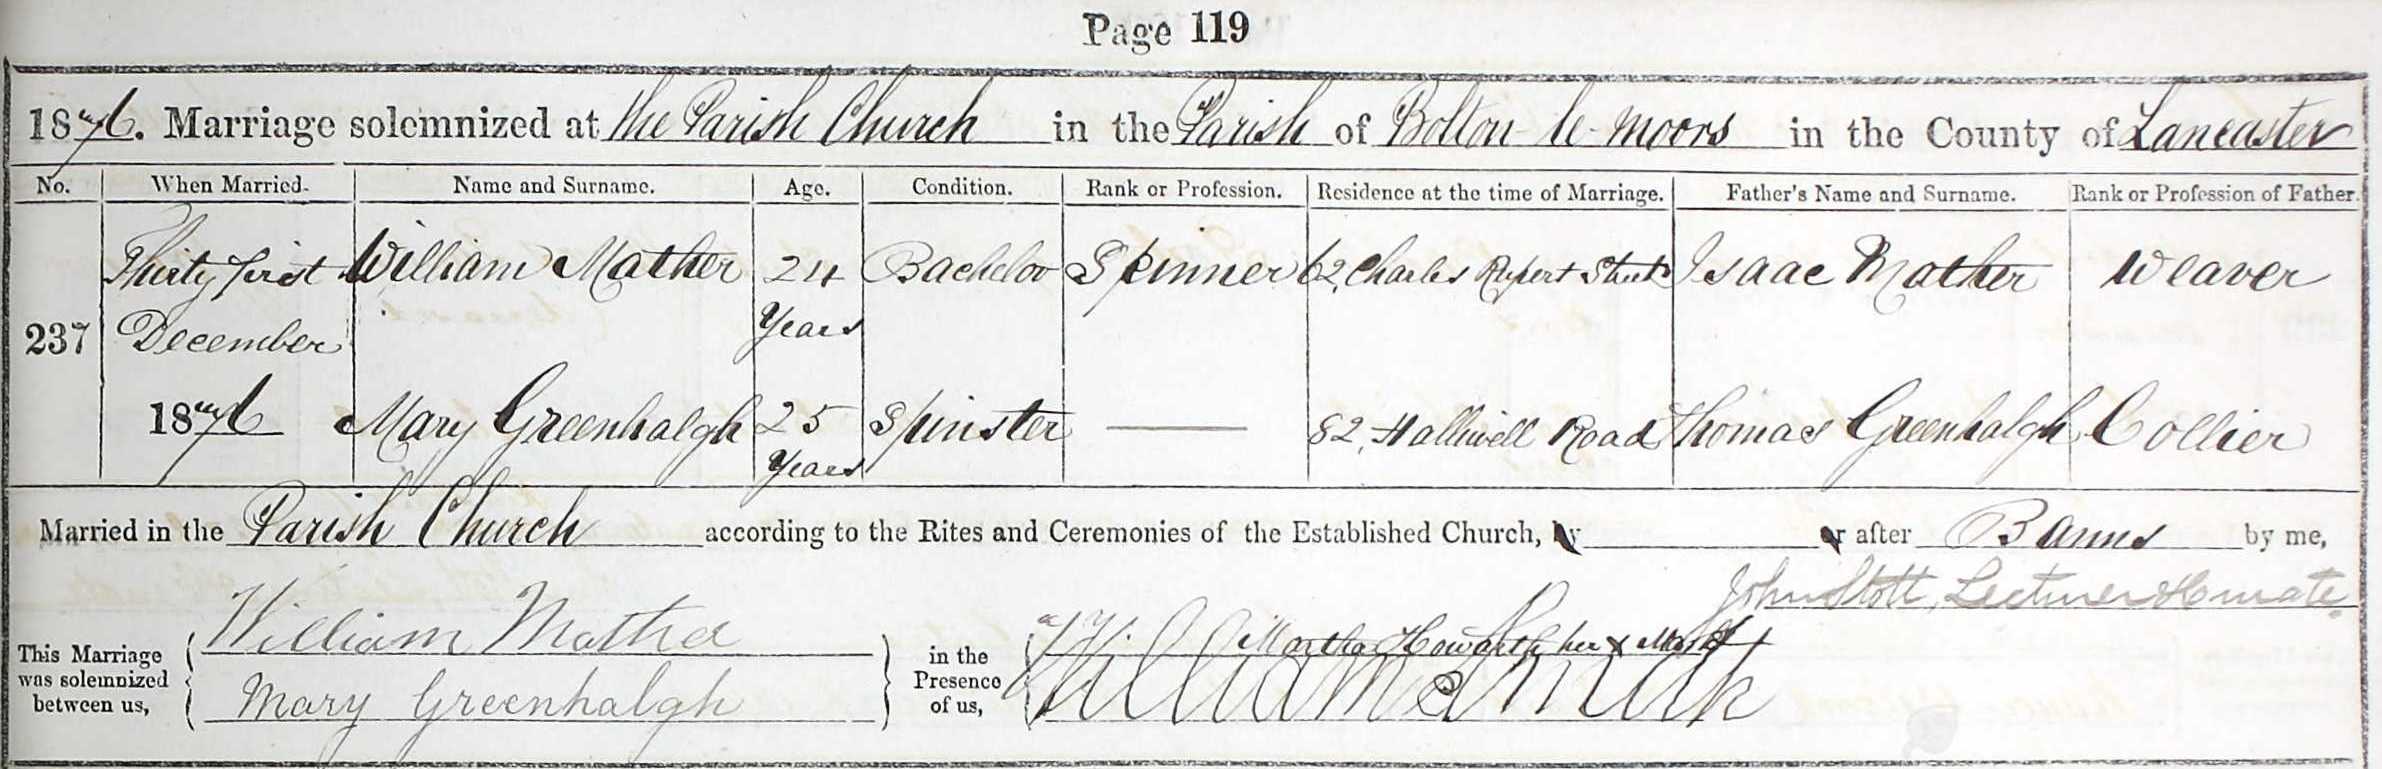 Page 119
1876. Marriage solemnized at the Parish Church in the Parish of Bolton-le-Moors in the County of Lancaster
No. When Married. Name and Surname. Age. Condition. Rank or Profession. Residence at the time of Marriage. Father's Name and Surname. Rank or Profession of Father.
Thirty first William Mather 24 Bachelor Spinner 62, Charles Rupert Street Isaac Mather Weaver
Years
237 December
1876 Mary Greenhalgh 25 Spinster 82, Halliwell Road Thomas Greenhalgh Collier
Years
Married in the Parish Church according to the Rites and Ceremonies of the Established Church, by or after Banns by me,
John Stott, Lecturer & Curate.
This Marriage was solemnized between us, William Mather
Mary Greenhalgh
in the Presence of us, Martha Howarth her x Mark
William